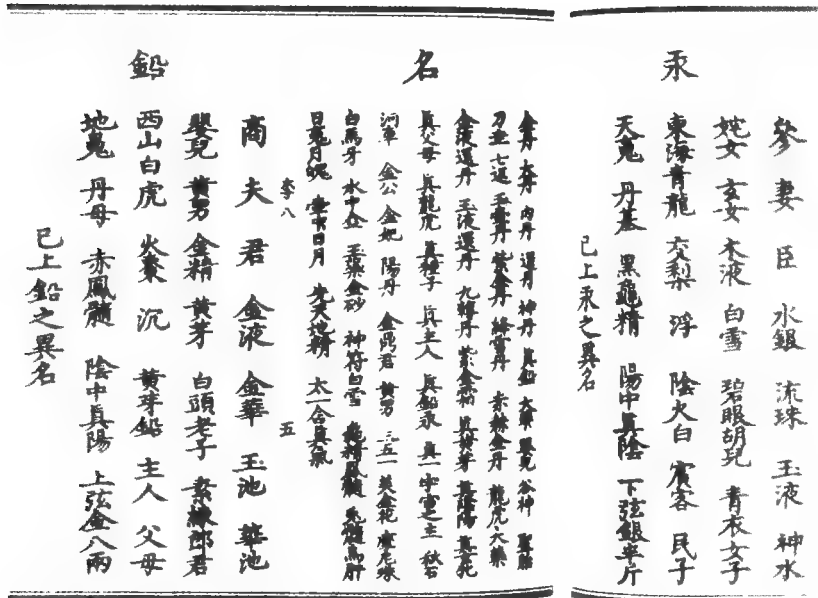 汞
參 妻 臣 水銀 流珠 玉液 神水
姹女 玄女 木液 白雪 碧眼胡兒 青衣女子
東海青龍 交梨 浮 陰火白 賓客 民子
天䰟 丹基 黑龜精 陽中眞陰 下弦銀半斤
已上汞之異名
名
金丹 大丹 內丹 還丹 神丹 眞鉛 嬰兒 谷神 聖胎
刀圭 七返 紫金丹 絳雪丹 赤赫金丹 龍虎大藥
金液還丹 玉液還丹 九轉丹 紫金霜 眞黃芽 眞陰陽
眞父母 眞龍虎 眞種子 眞主人 眞鉛汞 眞一 中宮之主 秋石
河車 金公 金妃 陽丹 黃男 三五一 美金花
白馬牙 水中金 玉蘂金砂 神符白雪 龜精鳳髓 兎髓烏肝
日䰟月魄 壷中日月 先天地精 太一含眞氣
李八
五
鉛
商 夫 君 金液 金華 玉池 華池
嬰兒 黃男 金精 黃芽 白頭老子 素練郎君
西山白虎 火棗 沉 黃芽鉛 主人 父母
地魄 丹母 赤鳳髓 陰中眞陽 上弦金八兩
已上鉛之異名